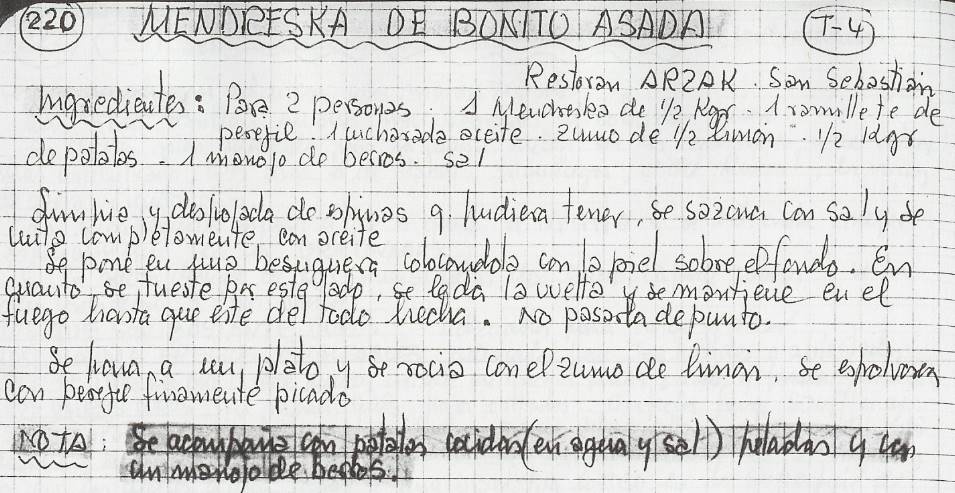 220 MENDRESKA DE BONITO ASADA T-4
Restoran ARZAK. San Sebastián
Ingredientes: Para 2 personas. 1 Mendreska de 1/2 Kgr. 1 ramillete de
perejil. 1 cucharada aceite. zumo de 1/2 limón. 1/2 Kgr
de patatas. 1 manojo de berros. sal
Limpia y despojada de espinas q. pudiera tener, se sazona con sal y se
unta completamente con aceite
Se pone en una besuguera colocandola con la piel sobre el fondo. En
cuanto se tueste por este lado, se le da la vuelta y se mantiene en el
fuego hasta que este del todo hecha. No pasarla de punto.
Se pasa a un plato y se rocia con el zumo de limón, se espolvorea
con perejil finamente picado
NOTA: Se acompaña con patatas cocidas (en agua y sal) peladas y con
un manojo de berros.